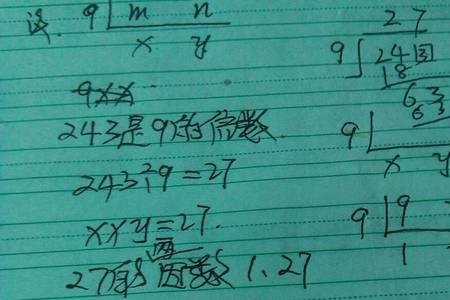 设. 9 m n
x y
243是9的倍数.
243÷9=27
x×y=27.
27的两因数 1、27
27
9 243
18
63
63
9
x y
9 9
1